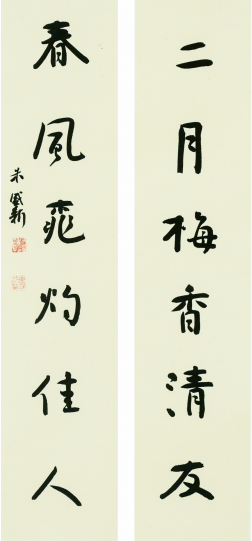 二月梅香清友
春風桃灼佳人
朱